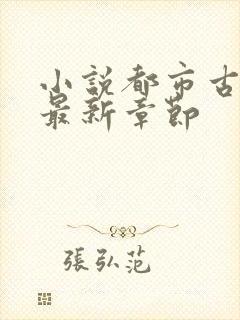 小説都市古
最新章節
張弘范